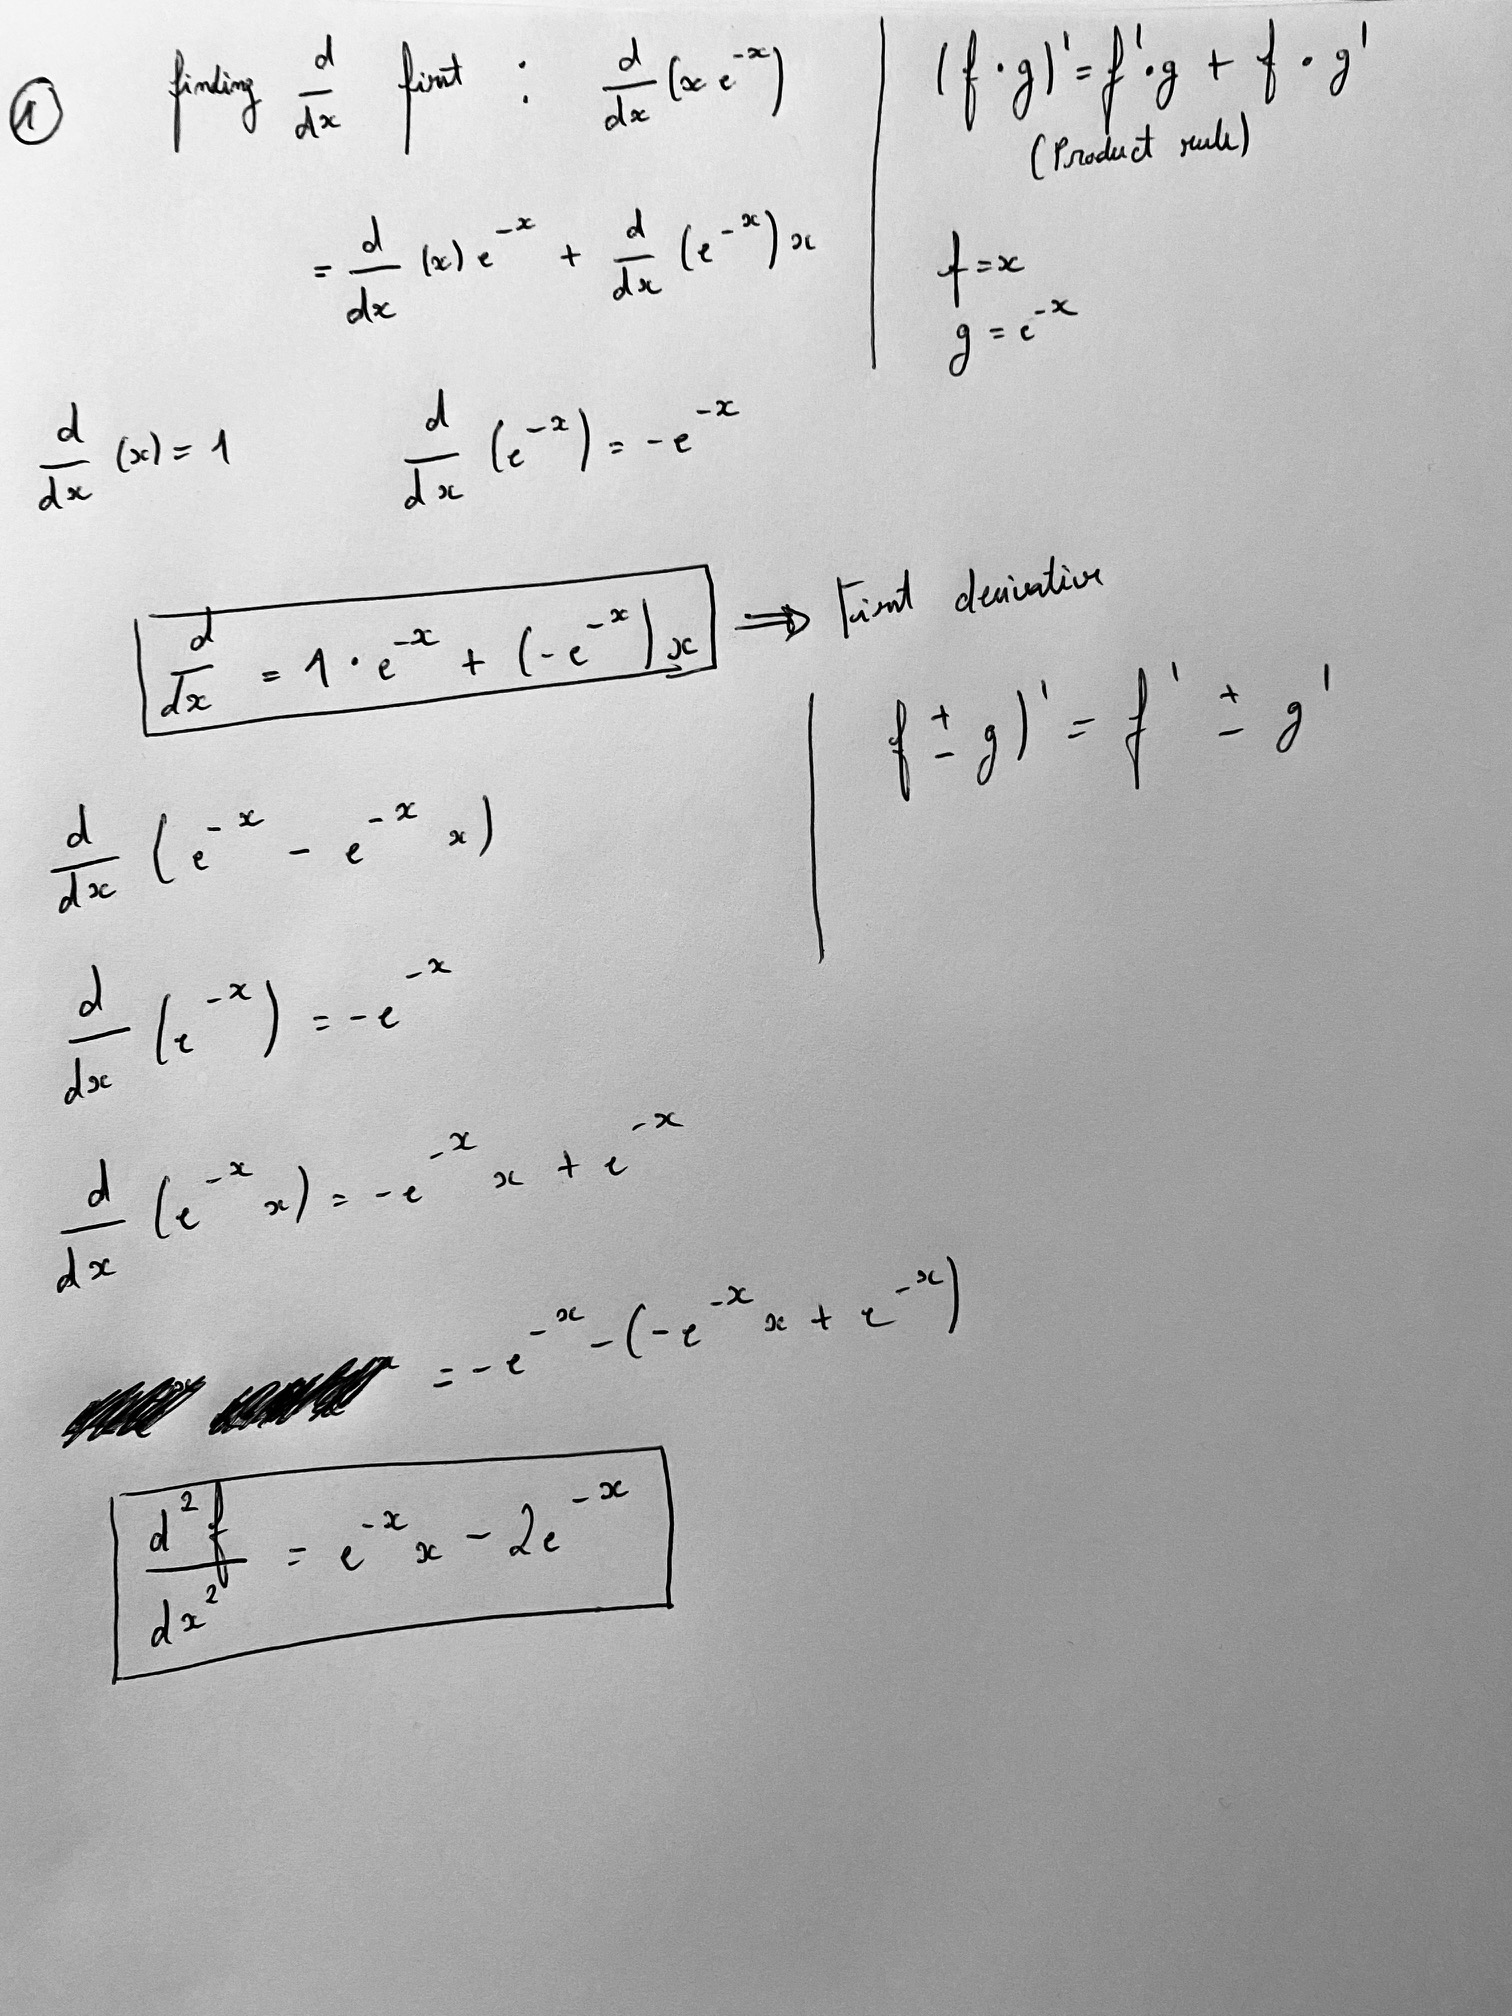 ① finding d/dx first : d/dx (x e^-x) | (f · g)' = f' · g + f · g'
(Product rule)
= d/dx (x) e^-x + d/dx (e^-x) x
f = x
g = e^-x
d/dx (x) = 1 d/dx (e^-x) = -e^-x
d/dx = 1 · e^-x + (-e^-x) x ⇒ First derivative
f ± g)' = f' ± g'
d/dx (e^-x - e^-x x)
d/dx (e^-x) = -e^-x
d/dx (e^-x x) = -e^-x x + e^-x
= -e^-x - (-e^-x x + e^-x)
d²f/dx² = e^-x x - 2e^-x